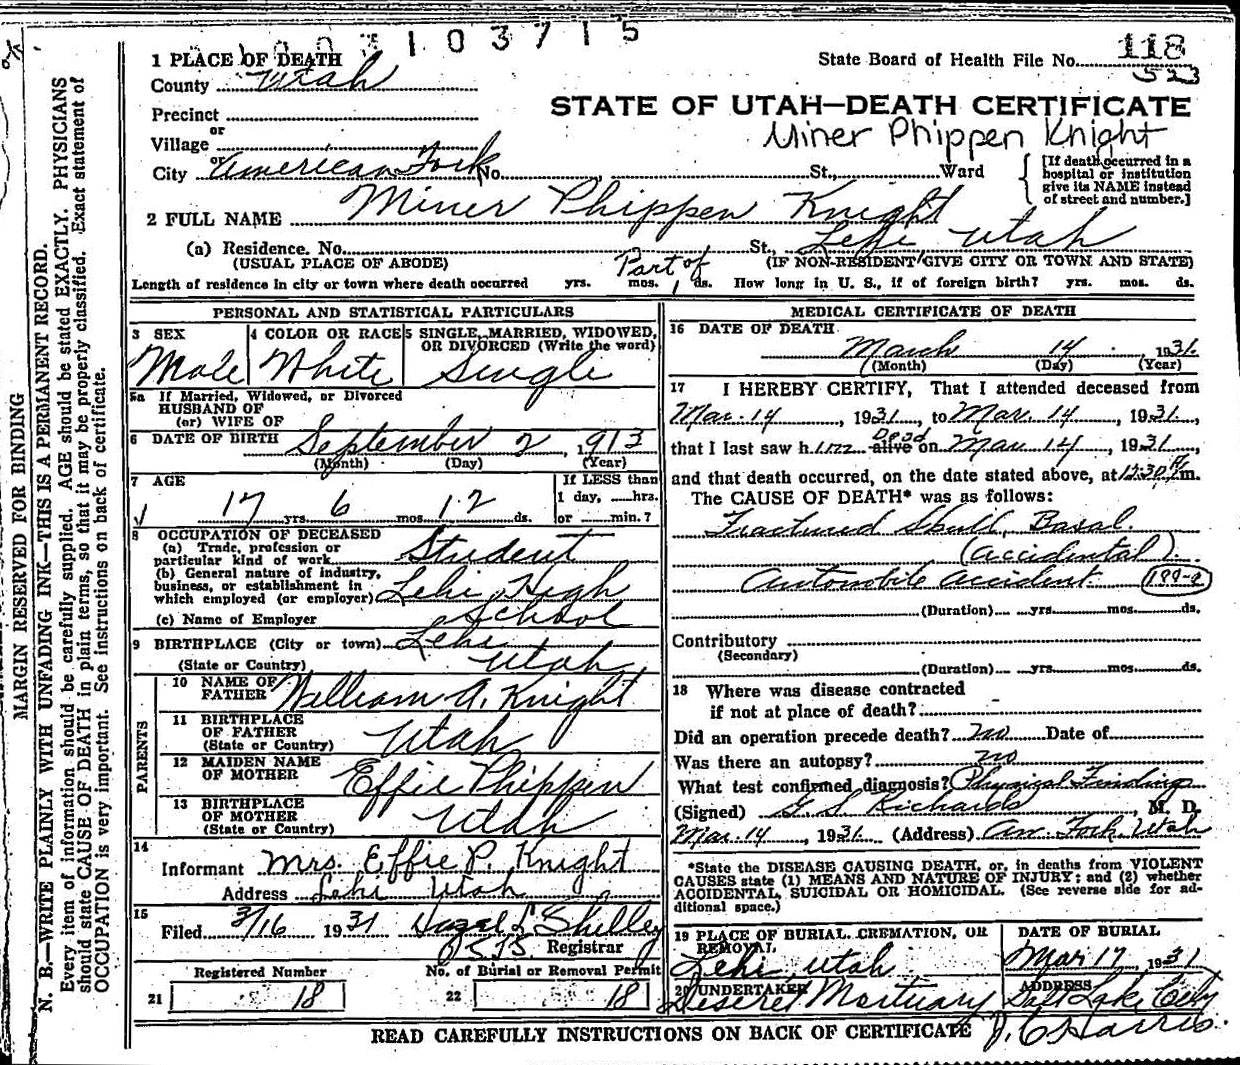 1 0 3 7 1 5
1 PLACE OF DEATH
State Board of Health File No. 118
523
County Utah
STATE OF UTAH—DEATH CERTIFICATE
Precinct
or
Miner Phippen Knight
Village
or
City American Fork No. , St., Ward
[If death occurred in a hospital or institution give its NAME instead of street and number.]
2 FULL NAME Miner Phippen Knight
(a) Residence. No. St., Lehi Utah
(USUAL PLACE OF ABODE) (IF NON-RESIDENT GIVE CITY OR TOWN AND STATE)
Part of
Length of residence in city or town where death occurred yrs. mos. 1 ds. How long in U. S., if of foreign birth? yrs. mos. ds.
PERSONAL AND STATISTICAL PARTICULARS
3 SEX 4 COLOR OR RACE 5 SINGLE, MARRIED, WIDOWED, OR DIVORCED (Write the word)
Male White Single
5a If Married, Widowed, or Divorced
HUSBAND OF
(or) WIFE OF
6 DATE OF BIRTH September 2, 1913
(Month) (Day) (Year)
7 AGE If LESS than
1 day, hrs.
17 yrs. 6 mos. 12 ds. or min.?
8 OCCUPATION OF DECEASED
(a) Trade, profession or
particular kind of work Student
(b) General nature of industry,
business, or establishment in
which employed (or employer) Lehi High
(c) Name of Employer School
9 BIRTHPLACE (City or town) Lehi
(State or Country) Utah
PARENTS
10 NAME OF
FATHER William A. Knight
11 BIRTHPLACE
OF FATHER
(State or Country) Utah
12 MAIDEN NAME
OF MOTHER Effie Phippen
13 BIRTHPLACE
OF MOTHER
(State or Country) Utah
14
Informant Mrs. Effie P. Knight
Address Lehi Utah
15
Filed 3/16 1931 Hazel L Shelley
Registrar
Registered Number No. of Burial or Removal Permit
21 18 22 18
MEDICAL CERTIFICATE OF DEATH
16 DATE OF DEATH
March 14 1931
(Month) (Day) (Year)
17 I HEREBY CERTIFY, That I attended deceased from
Mar. 14, 1931, to Mar. 14, 1931,
Dead
that I last saw him alive on Mar 14, 1931,
and that death occurred, on the date stated above, at 12:30 m.
The CAUSE OF DEATH* was as follows:
Fractured Skull, Basal.
(accidental)
Automobile accident
(Duration) yrs. mos. ds.
Contributory
(Secondary)
(Duration) yrs. mos. ds.
18 Where was disease contracted
if not at place of death?
Did an operation precede death? no Date of
Was there an autopsy? no
What test confirmed diagnosis? Physical Findings
(Signed) G. S. Richards M. D.
Mar. 14, 1931 (Address) Am. Fork, Utah
*State the DISEASE CAUSING DEATH, or, in deaths from VIOLENT
CAUSES state (1) MEANS AND NATURE OF INJURY; and (2) whether
ACCIDENTAL, SUICIDAL OR HOMICIDAL. (See reverse side for ad-
ditional space.)
19 PLACE OF BURIAL, CREMATION, OR REMOVAL DATE OF BURIAL
Lehi, Utah Mar 17 1931
20 UNDERTAKER ADDRESS
Deseret Mortuary Salt Lake City
J. C. Harris
READ CAREFULLY INSTRUCTIONS ON BACK OF CERTIFICATE
MARGIN RESERVED FOR BINDING
N. B.—WRITE PLAINLY WITH UNFADING INK—THIS IS A PERMANENT RECORD.
Every item of information should be carefully supplied. AGE should be stated EXACTLY. PHYSICIANS
should state CAUSE OF DEATH in plain terms, so that it may be properly classified. Exact statement of
OCCUPATION is very important. See instructions on back of certificate.